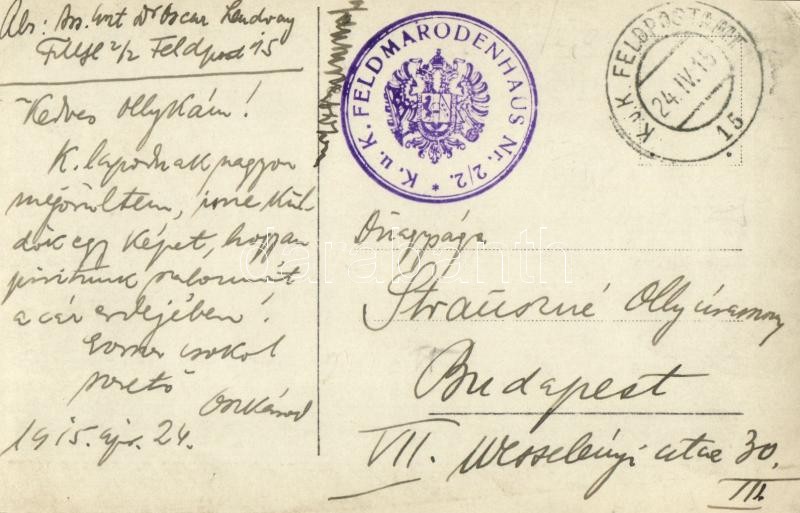 Abs: Ass. Arzt Dr Oscar Lendvay
FMH 2/2 Feldpost 15
Kedves Ollykám!
K. lapodnak nagyon
megörültem, ime kül-
dök egy képet, hogyan
pirítunk szalonnát
a cár erdejében!
csókol
szerető
Oszkárod
1915. ápr. 24.
K. u. K. FELDMARODENHAUS Nr. 2/2. *
K.u.K. FELDPOSTAMT
24.IV.15
15
Őnagysága
Strauszné Olly úrasszony
Budapest
VII. Wesselényi utca 30.
III.
darabanth